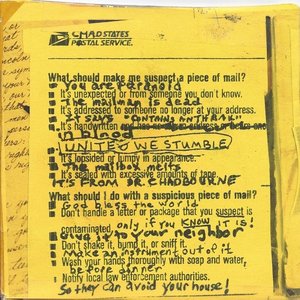 CHADSTATES
POSTAL SERVICE.
What should make me suspect a piece of mail?
You are paranoid
It's unexpected or from someone you don't know.
The mailman is dead
It's addressed to someone no longer at your address.
It says "CONTAINS ANTHRAX"
It's handwritten and has no address or
in blood
UNITED WE STUMBLE
It's lopsided or lumpy in appearance.
The mailbox melts
It's sealed with excessive amounts of tape.
IT'S FROM DR. CHADBOURNE
What should I do with a suspicious piece of mail?
God bless the world
Don't handle a letter or package that you suspect is
contaminated. only if you KNOW it is!
Give it to your neighbor
Don't shake it, bump it, or sniff it.
Make an instrument out of it
Wash your hands thoroughly with soap and water,
before dinner
Notify local law enforcement authorities.
So they can avoid your house!